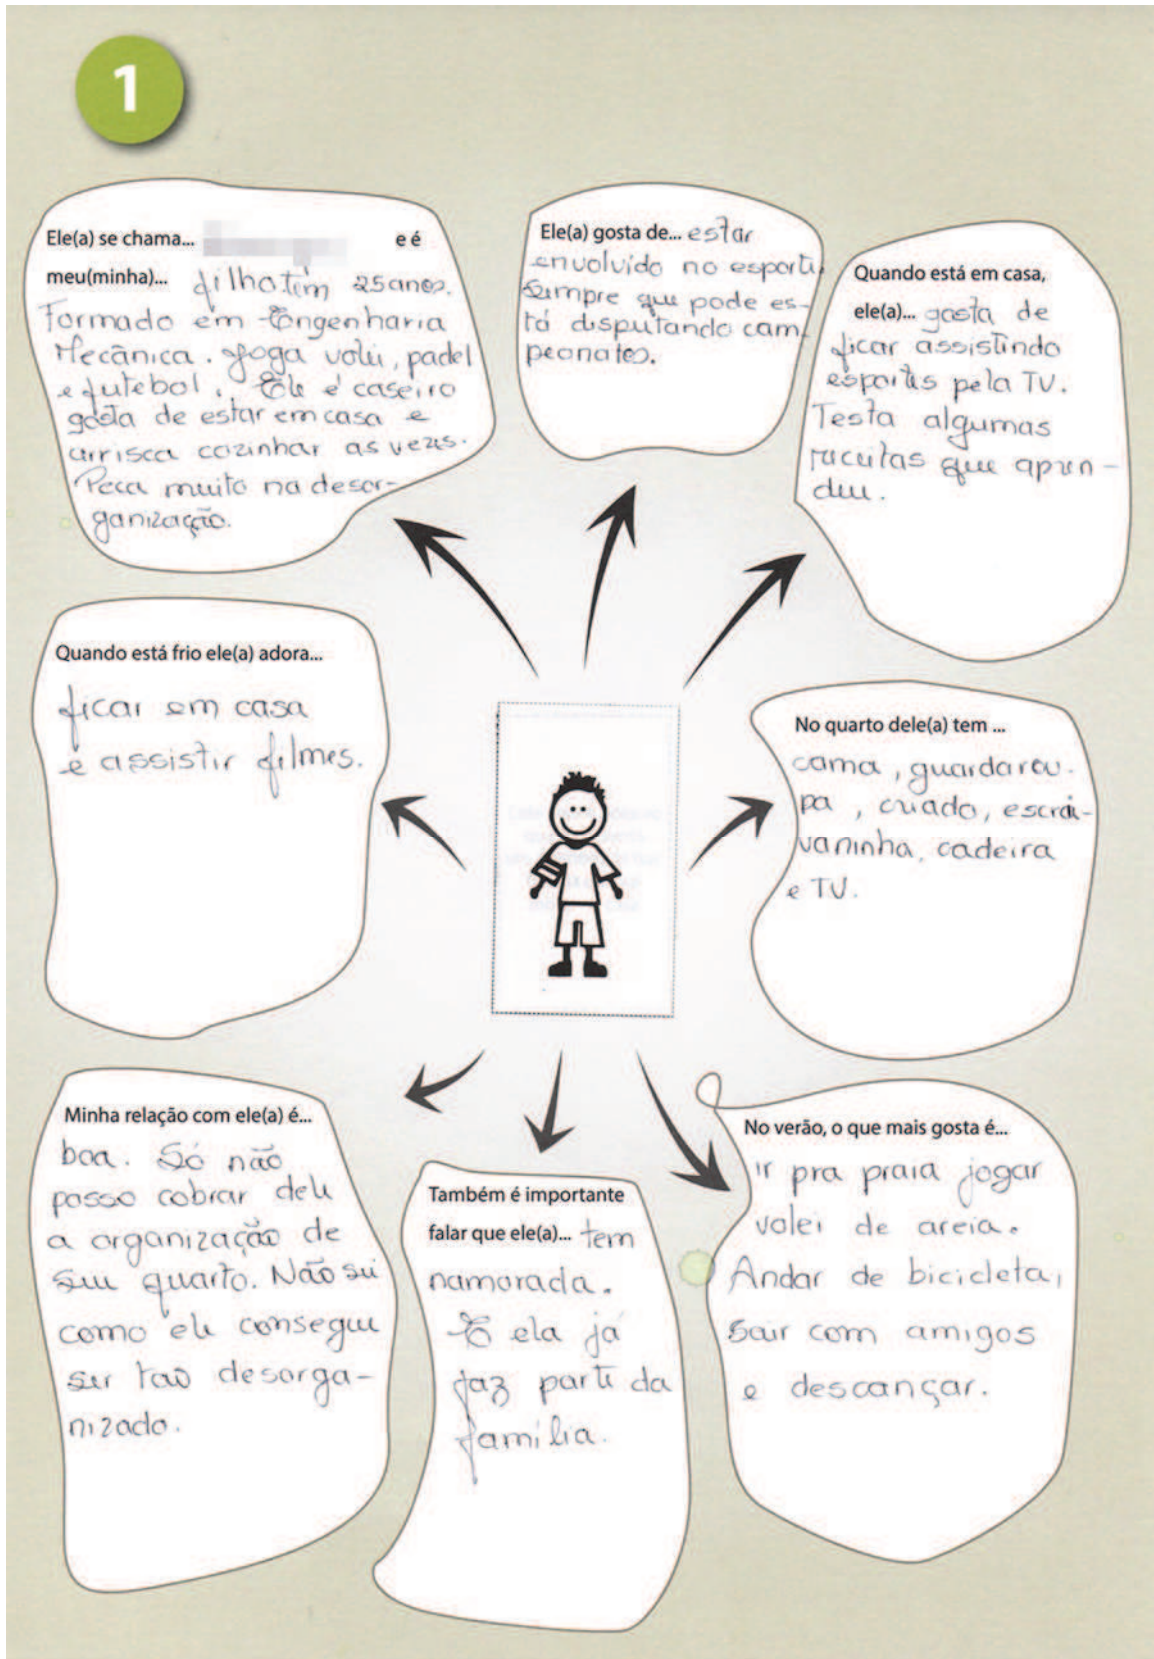 1
Ele(a) se chama... e é
meu(minha)... filho tem 25 anos.
Formado em Engenharia
Mecânica. Joga volei, padel
e futebol. Ele é caseiro
gosta de estar em casa e
arrisca cozinhar as vezes.
Peca muito na desor-
ganização.
Ele(a) gosta de... estar
envolvido no esporte
sempre que pode es-
tá disputando cam-
peonatos.
Quando está em casa,
ele(a)... gosta de
ficar assistindo
esportes pela TV.
Testa algumas
receitas que apren-
deu.
Quando está frio ele(a) adora...
ficar em casa
e assistir filmes.
No quarto dele(a) tem ...
cama, guardarou-
pa, criado, escrai-
vaninha, cadeira
e TV.
Minha relação com ele(a) é...
boa. Só não
posso cobrar dele
a organização de
seu quarto. Não sei
como ele consegue
ser tão desorga-
nizado.
Também é importante
falar que ele(a)... tem
namorada.
E ela já
faz parte da
família.
No verão, o que mais gosta é...
ir pra praia jogar
volei de areia.
Andar de bicicleta,
sair com amigos
e descançar.